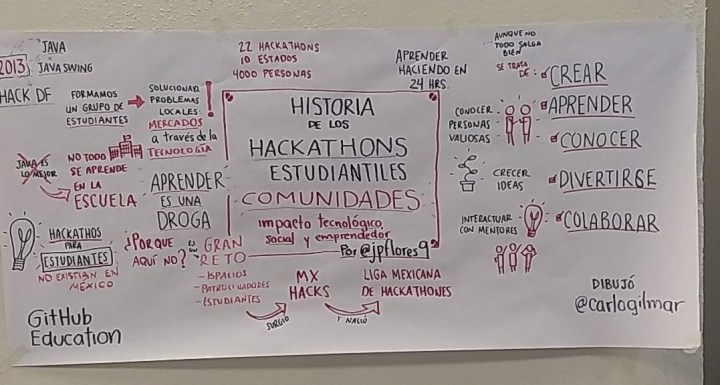 JAVA
2013
JAVA SWING
HACK DF
FORMAMOS
UN GRUPO DE
ESTUDIANTES
SOLUCIONAR
PROBLEMAS
LOCALES
MERCADOS
a través de la
TECNOLOGÍA
!
22 HACKATHONS
10 ESTADOS
4000 PERSONAS
APRENDER
HACIENDO EN
24 HRS.
AUNQUE NO
TODO SALGA
BIEN
SE TRATA
DE:
CREAR
APRENDER
CONOCER
DIVERTIRSE
COLABORAR
CONOCER
PERSONAS
VALIOSAS
CRECER
IDEAS
INTERACTUAR
CON MENTORES
JAVA ES
LO MEJOR
NO TODO
SE APRENDE
EN LA
ESCUELA
APRENDER
ES UNA
DROGA
HISTORIA
DE LOS
HACKATHONS
ESTUDIANTILES
COMUNIDADES
impacto tecnológico,
social y emprendedor
Por @jpflores9
HACKATHOS
PARA
ESTUDIANTES
NO EXISTIAN EN
MÉXICO
¿POR QUE
AQUÍ NO?
ES UN
GRAN
RETO
- ESPACIOS
- PATROCINADORES
- ESTUDIANTES
SURGIÓ
MX
HACKS
Y NACIÓ
LIGA MEXICANA
DE HACKATHONES
GitHub
Education
DIBUJÓ
@carlogilmar